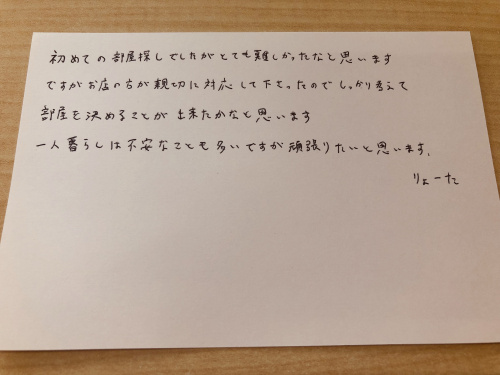 初めての部屋探しでしたがとても難しかったなと思います
ですがお店の方が親切に対応して下さったのでしっかり考えて
部屋を決めることが出来たかなと思います
一人暮らしは不安なことも多いですが頑張りたいと思います.
りょーた